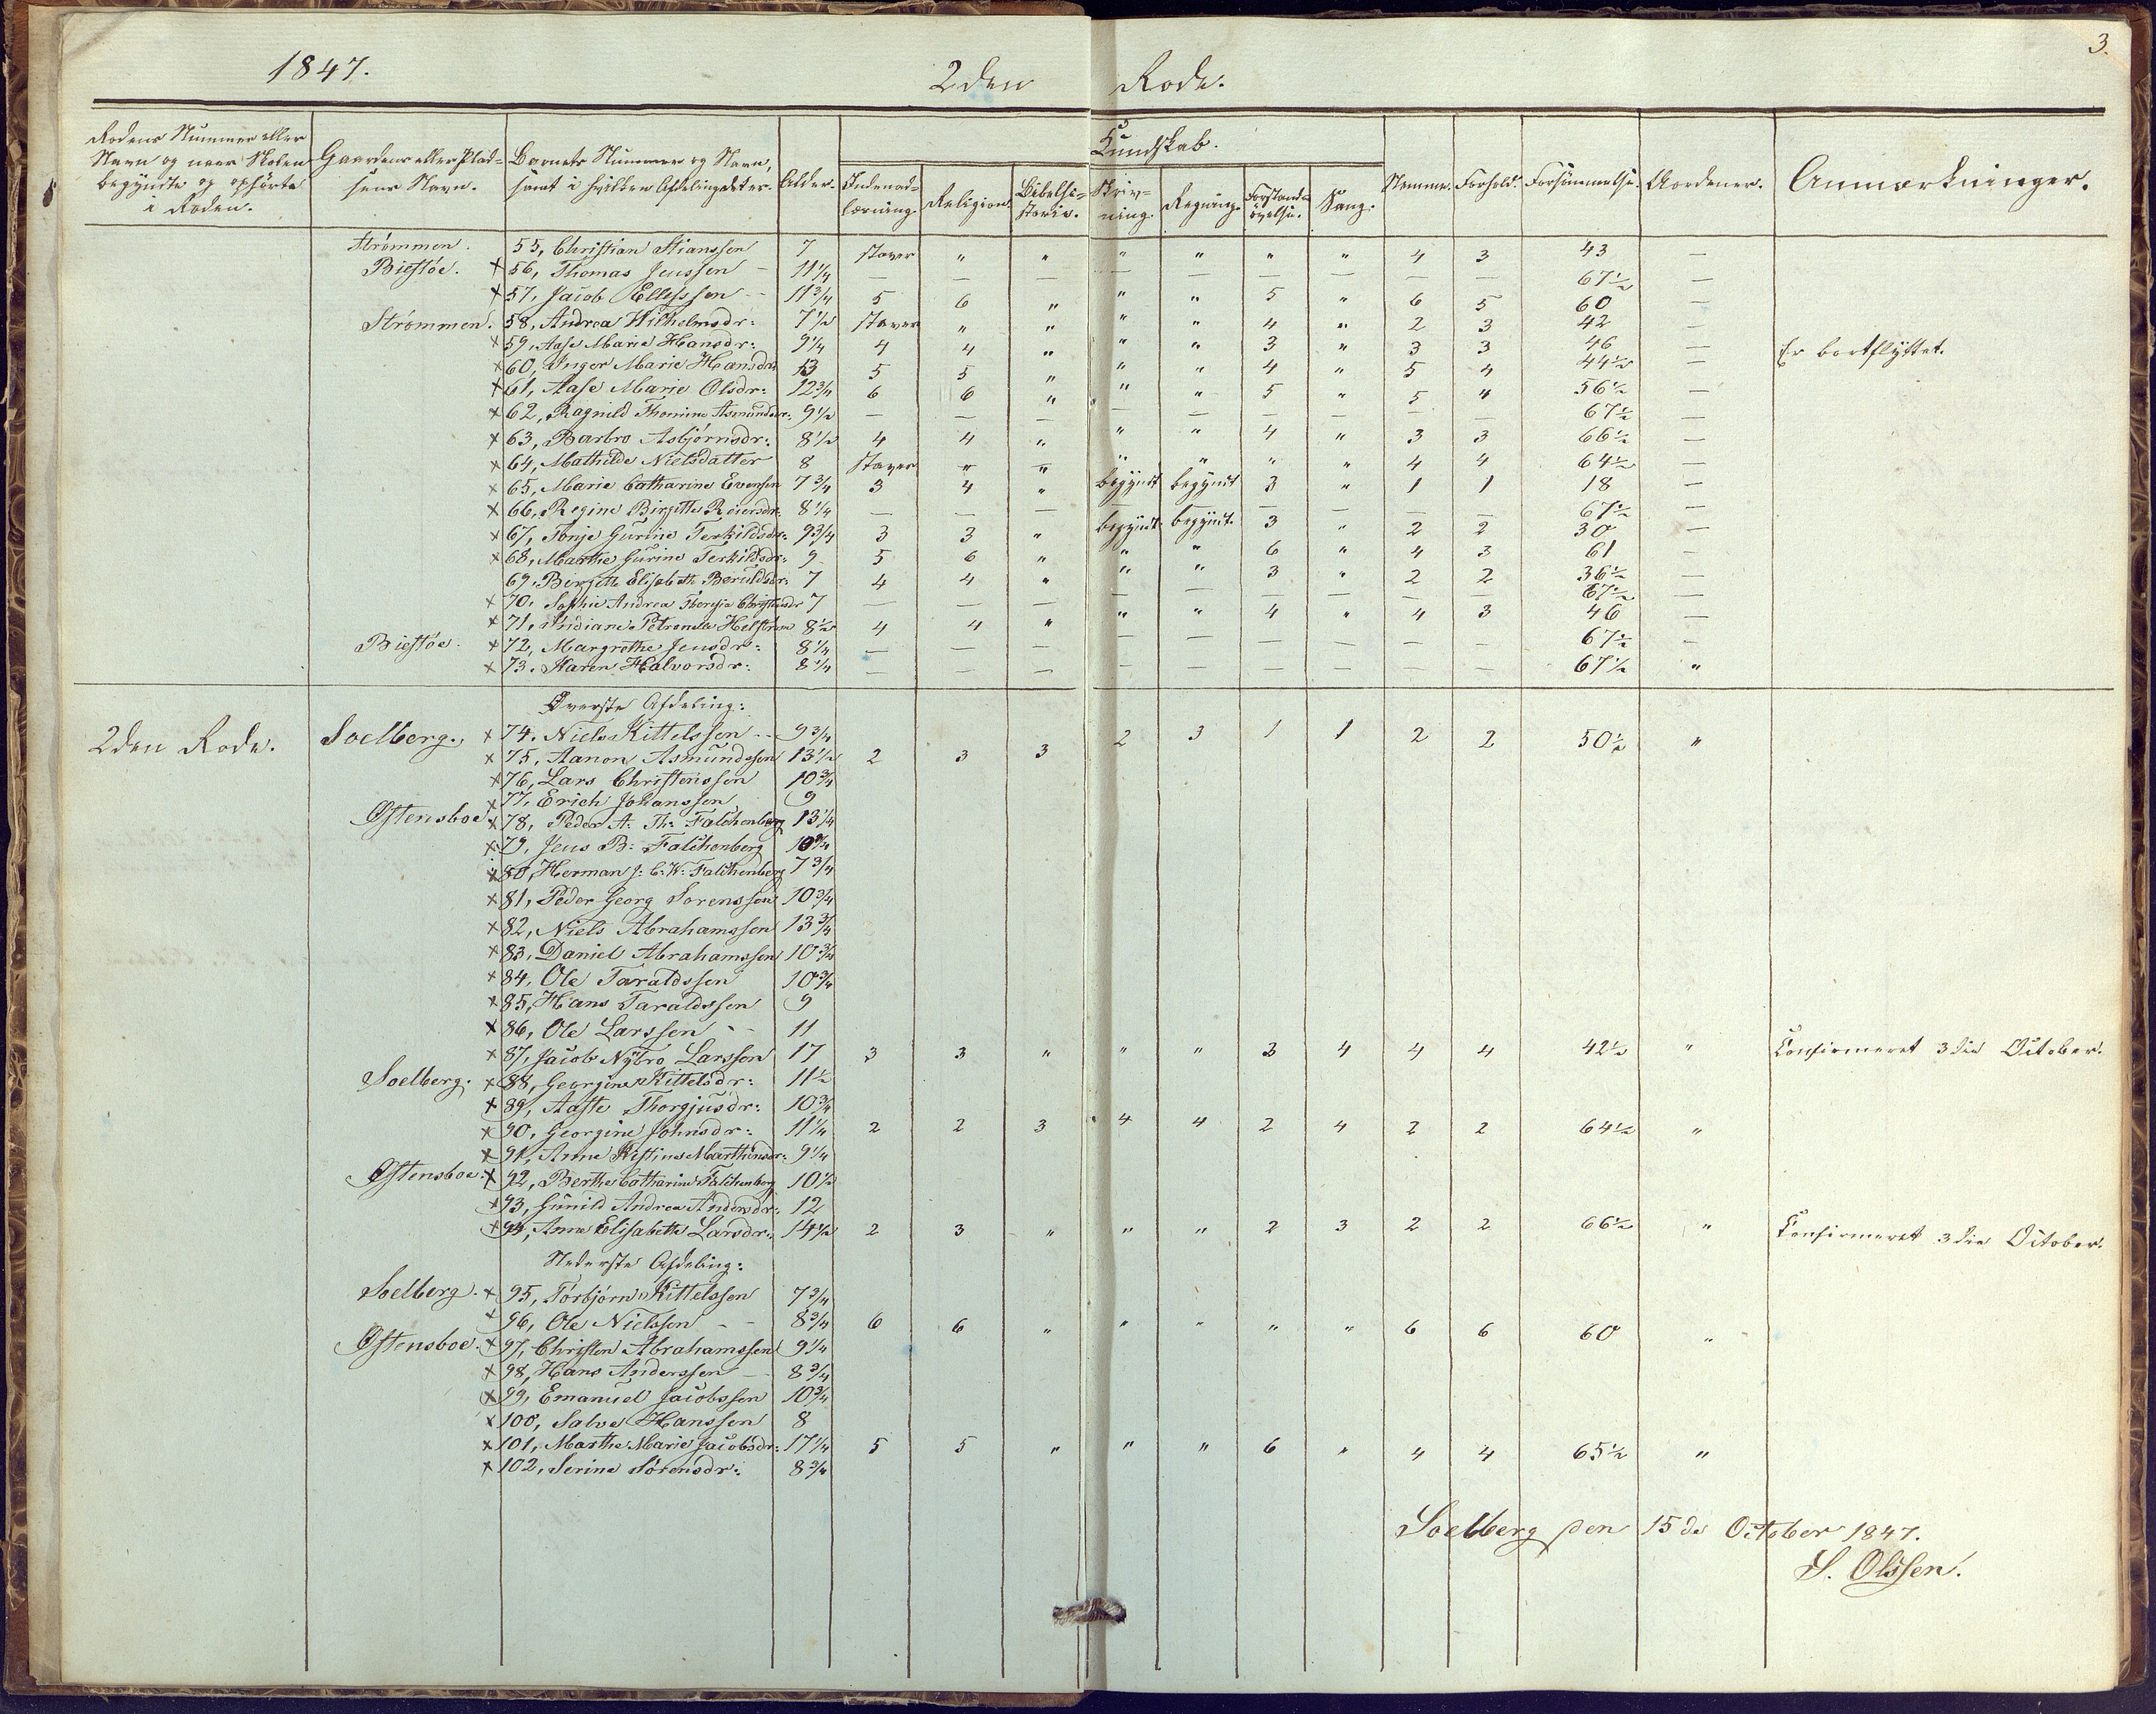 1847.
2den Rode.
3.
Rodens Nummer eller Navn og naar Skolen begyndte og ophørte i Roden.
Gaardens eller Pladsens Navn.
Barnets Nummer og Navn, samt i hvilken Afdeling det er.
Alder.
Kundskab.
Indenadlæsning.
Religion.
Bibelhistorie.
Skrivning.
Regning.
Forstandsøvelse.
Sang.
Nemme.
Forhold.
Forsømmelse.
Anmærkninger.
Strømmen. 55, Christian Stianssen 7 staver " " " " " " 4 3 43 —
Biestøe. × 56, Thomas Jenssen - 11 1/4 — — — — — — — — — 67 1/2 —
× 57, Jacob Ellefssen - 11 3/4 5 6 " " " 5 " 6 5 60 —
Strømmen. 58, Andrea Wilhelmsdr: 7 1/2 staver " " " " 4 " 2 3 42 —
× 59, Aase Marie Hansdr: 9 1/4 4 4 " " " 3 " 3 3 46 — Er bortflyttet.
× 60, Inger Marie Hansdr: 13 5 5 " " " 4 " 5 4 44 1/2 —
× 61, Aase Marie Olsdr: 12 3/4 6 6 " " " 5 " 5 4 56 1/2 —
× 62, Ragnild Thomine Asmundsdr: 9 1/2 — — — — — — — — — 67 1/2 —
× 63, Barbro Asbjørnsdr: 8 1/2 4 4 " " " 4 " 3 3 66 1/2 —
× 64, Mathilde Nielsdatter 8 staver " " " " " " 4 4 64 1/2 —
× 65, Marie Catharine Evensen 7 3/4 3 4 " begyndt begyndt 3 " 1 1 18 —
× 66, Regine Birgitte Reiersdr: 8 1/4 — — — — — — — — — 67 1/2 —
× 67, Tonje Gurine Terkildsdr: 9 3/4 3 3 " begyndt. begyndt. 3 " 2 2 30 —
× 68, Marthe Gurine Terkildsdr: 9 5 6 " " " 6 " 4 3 61 -
69, Bergitte Elisabeth Beruldsdr: 7 4 4 " " " 3 " 2 2 36 1/2 —
× 70, Sophie Andrea Theresia Christiansdr 7 — — — — — — — — — 67 1/2 —
× 71, Petronelle Helstrøm 8 1/2 4 4 " " " 4 " 4 3 46 —
Biestøe. × 72, Margrethe Jensdr: 8 1/4 — — — — — — — — — 67 1/2 —
× 73. Karen Halvorsdr: 8 1/4 — — — — — — — — — 67 1/2 "
Øverste Afdeling:
2den Rode. Soelberg. × 74. Niels Kittelssen - - 9 3/4
× 75, Aanon Asmundssen 13 1/2 2 3 3 2 3 1 1 2 2 50 1/2 "
× 76, Lars Christenssen 10 3/4
× 77, Erich Johanssen 9
Østensboe × 78, Peder A. Th: Falchenberg 13 1/4
× 79, Jens B: Falchenberg 10 3/4
× 80, Herman J: C. W: Falchenberg 7 3/4
× 81, Peder Georg Sørenssen 10 3/4
× 82, Niels Abrahamssen 13 3/4
× 83, Daniel Abrahamssen 10 3/4
× 84, Ole Taraldssen 10 3/4
× 85, Hans Taraldssen 9
× 86, Ole Larssen - - 11
× 87, Jacob Nybro Larssen 17 3 3 " " " 3 4 4 4 42 1/2 " Confirmeret 3die October.
Soelberg. × 88, Georgine Kittelsdr: 11 1/2
× 89, Aaste Thorgjusdr: 10 3/4
× 90, Georgine Johnsdr: 11 1/4 2 2 3 4 4 2 4 2 2 64 1/2 "
× 91, Anne Kistine Marthinsdr: 9 1/4
Østensboe. × 92, Berthe Catharine Falchenberg 10 1/2
× 93, Gunild Andrea Andersdr: 12
× 94, Anne Elisabeth Larsdr: 14 1/2 2 3 " " " 2 3 2 2 66 1/2 " Confirmeret 3die October.
Nederste Afdeling:
Soelberg. × 95, Torbjørn Kittelssen 7 3/4
× 96, Ole Nielssen - - 8 3/4 6 6 " " " " " 6 6 60 "
Østensboe. × 97, Christen Abrahamssen 9 1/4
× 98, Hans Anderssen - 8 3/4
× 99, Emanuel Jacobssen 10 3/4
× 100, Salve Hanssen 8
× 101, Marthe Marie Jacobsdr: 17 1/4 5 5 " " " 6 " 4 4 65 1/2 "
× 102, Serine Sørensdr: 8 3/4
Soelberg den 15de October 1847.
S. Olssen.